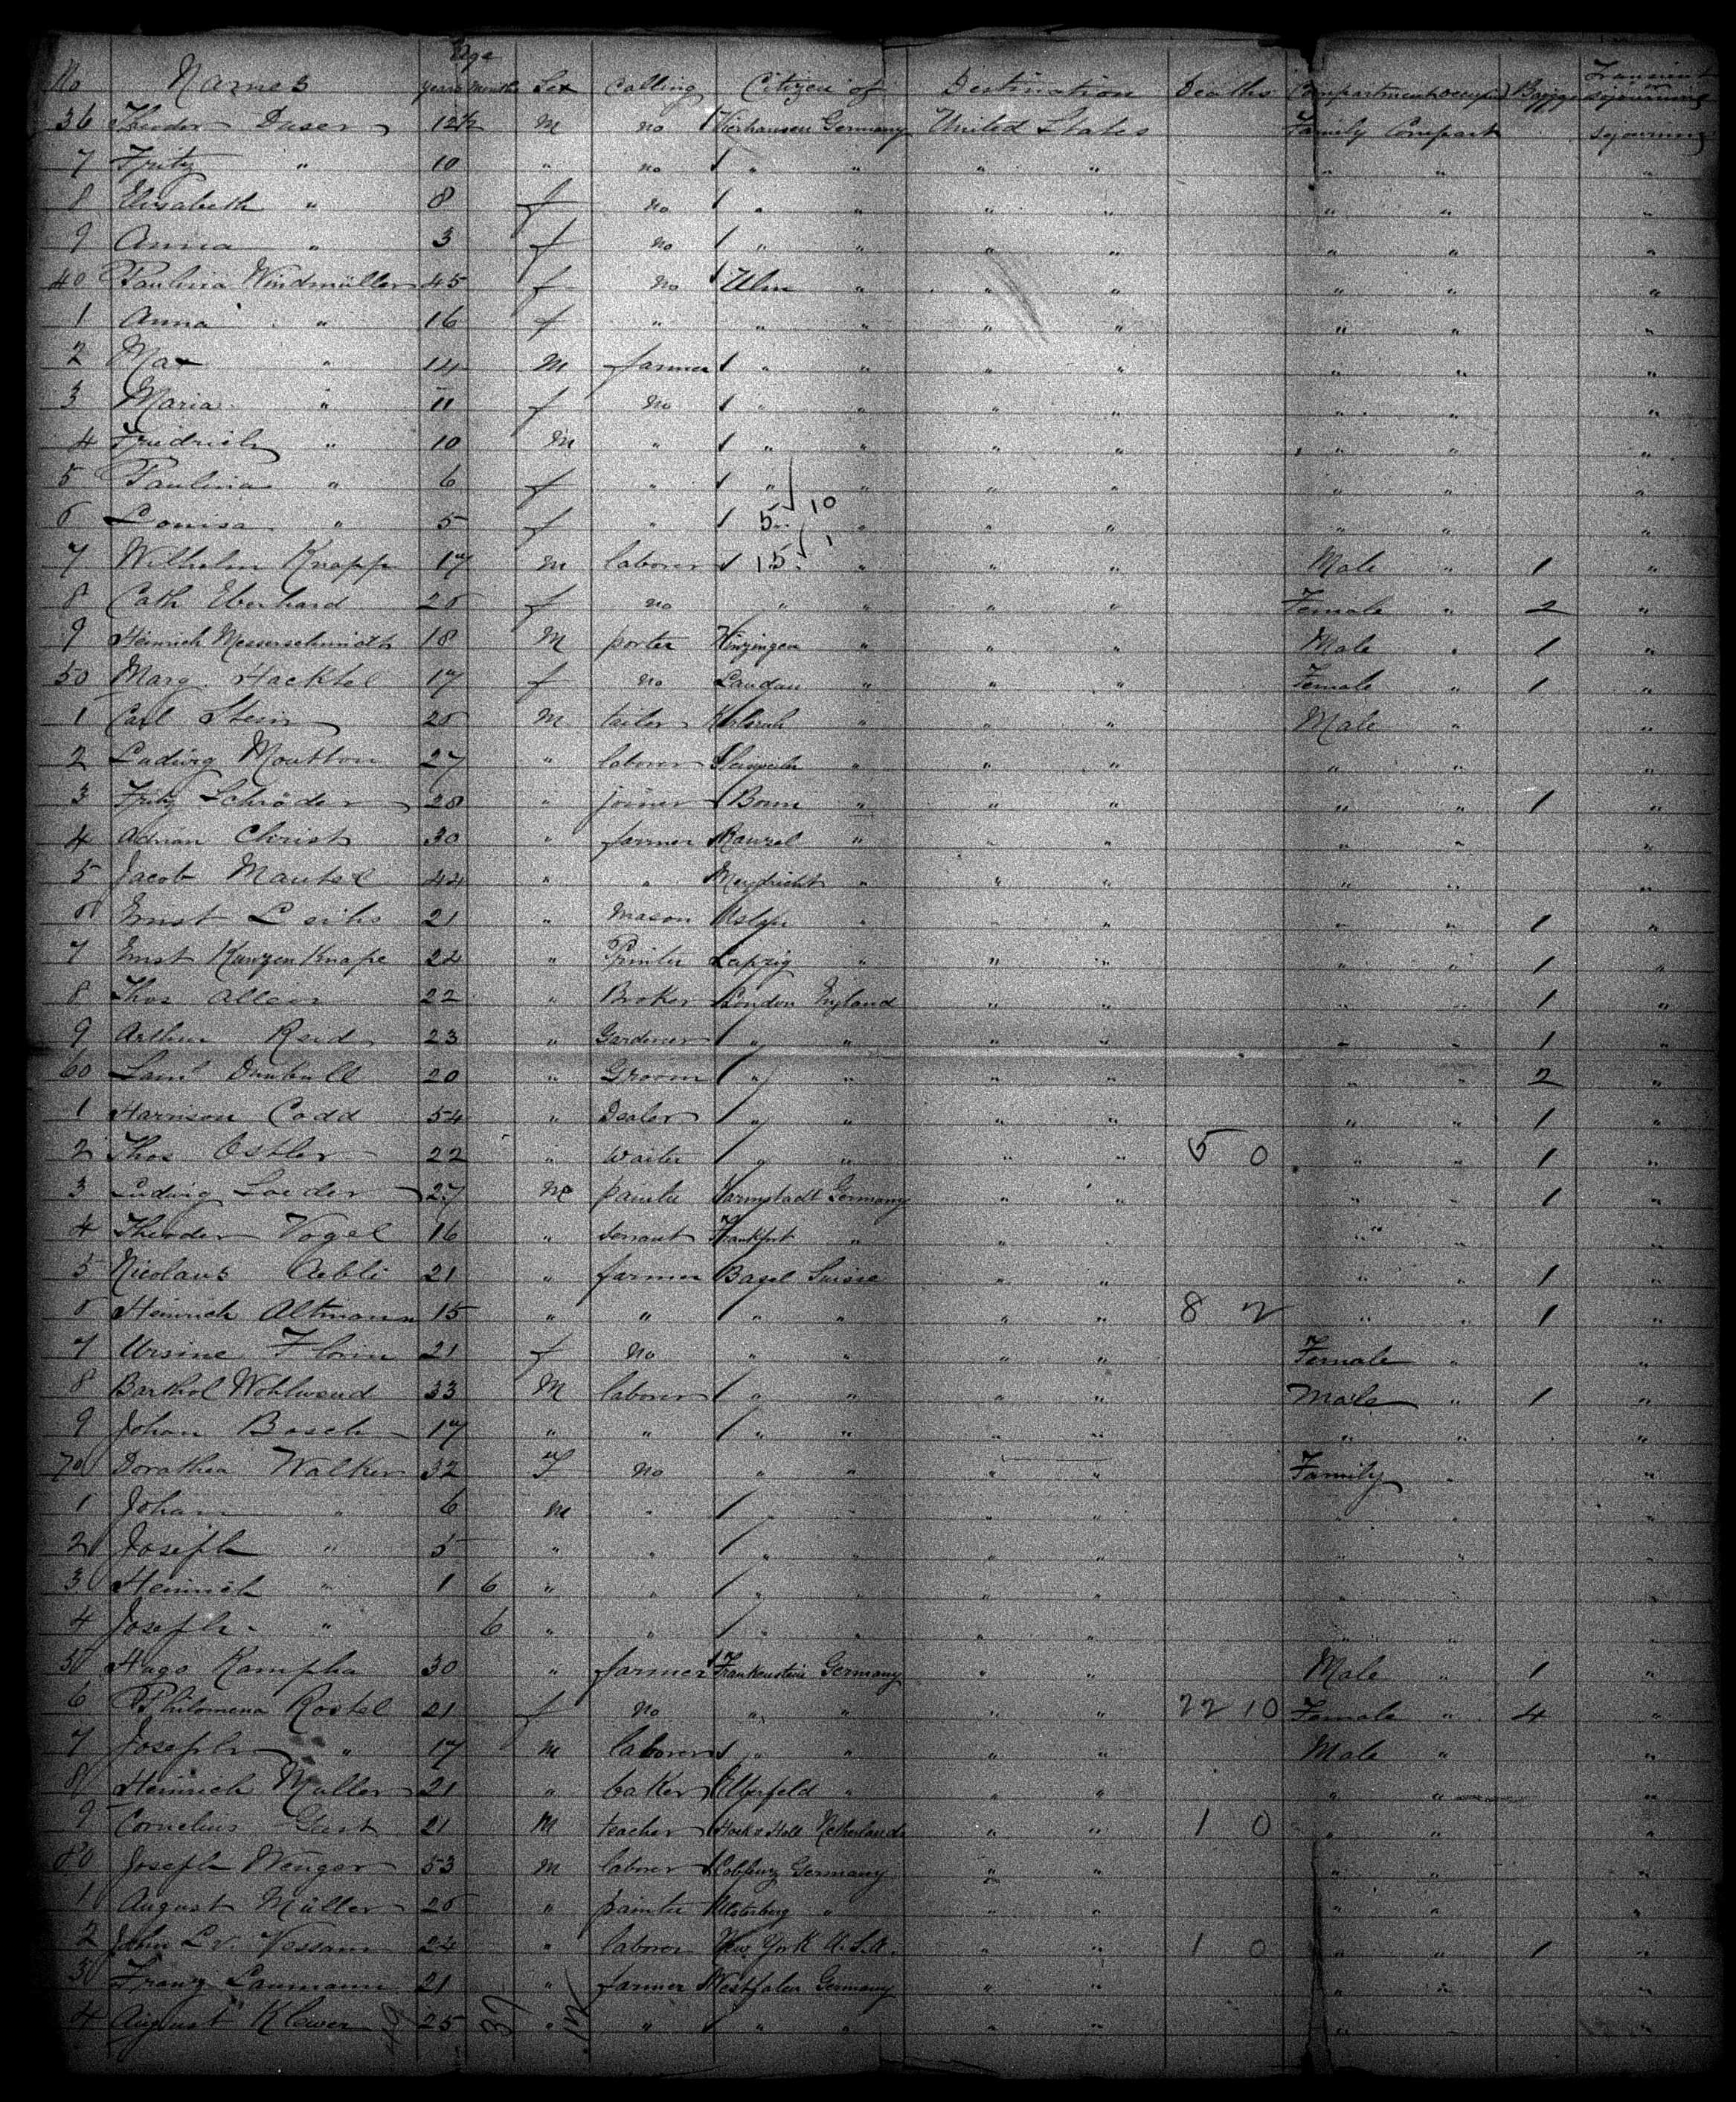 Age
No Names years months Sex Calling Citizen of Destination Deaths Compartment occupied Bagge Transient sojourning
36 Theodor Duser 12½ M no Germany United States Family Compart sojourning
7 Fritz " 10 " no " " " " " " "
8 Elisabeth " 8 f no " " " " " " "
9 Anna " 3 f no " " " " " " "
40 Paulina Windmüller 45 f no Ulm " " " " " "
1 Anna " 16 f " " " " " " " "
2 Max " 14 M farmer " " " " " " "
3 Maria " 11 f no " " " " " " "
4 Friedrich " 10 M " " " " " " " "
5 Paulina " 6 f " " " " " " " "
10
6 Louisa " 5 f " 5 " " " " " "
7 Wilhelm Knapp 17 m laborer 15 " " " Male " 1 "
8 Cath Eberhard 26 f no " " " " Female " 2 "
9 Heinrich Messerschmidth 18 M porter " " " Male " 1 "
50 Marg. Hacktel 17 f no Landau " " " Female " 1 "
1 Carl Stein 20 M tailor " " " Male " "
2 Ludwig Moutton 27 " laborer " " " " " "
3 Fritz Schröder 28 " joiner Bonn " " " " " 1 "
4 Adrian Christ 30 " farmer Rauzel " " " " " "
5 Jacob Mautel 44 " " " " " " " "
6 Ernst 21 " Mason " " " " " 1 "
7 Ernst Kunzen Knape 24 " Printer Leipzig " " " " " 1 "
8 Thos 22 " Broker London England " " " " 1 "
9 Arthur Reid 23 " Gardener " " " " " " 1 "
60 Dunhull 20 " Groom " " " " " " 2 "
1 Harrison Codd 54 " Dealer " " " " " " 1 "
2 Thos Ostler 22 " Waiter " " " " 5 0 " " 1 "
3 Ludwig Loeder 27 M painter Darmstadt Germany " " " " 1 "
4 Theodor Vogel 16 " servant Frankfort " " " " " "
5 Nicolaus Aebli 21 " farmer Basel Suisse " " " " 1 "
6 Heinrich Altmann 15 " " " " " " 8 2 " " 1 "
7 Ursine Florin 21 f no " " " " Female " "
8 Barthol Wohlwend 33 M laborer " " " " Male " 1 "
9 Johan Bosch 17 " " " " " " " " "
70 Dorathea Walker 32 F no " " " " Family " "
1 Johan " 6 M " " " " " " " "
2 Joseph " 5 " " " " " " " " "
3 Heinrich " 1 6 " " " " " " " " "
4 Joseph " 6 " " " " " " " " "
5 Hugo Kampha 30 " farmer Frankenstein Germany " " Male " 1 "
6 Philomena Rostel 21 f no " " " " 22 10 Female " 4 "
7 Joseph " 17 M laborer " " " " Male " "
8 Heinrich Muller 21 " baker Elberfeld " " " " " "
9 Cornelius 21 M teacher Netherlands " " 1 0 " " "
80 Joseph Wenger 53 M laborer Coblenz Germany " " " " "
1 August Müller 26 " painter " " " " " "
2 John L. v. Vessam 24 " laborer New York U.S.A. " " 1 0 " " 1 "
3 Franz Laumann 21 " farmer Westfalen Germany " " " " "
4 August Klewer 25 " " " " " " " " "
49 37 12